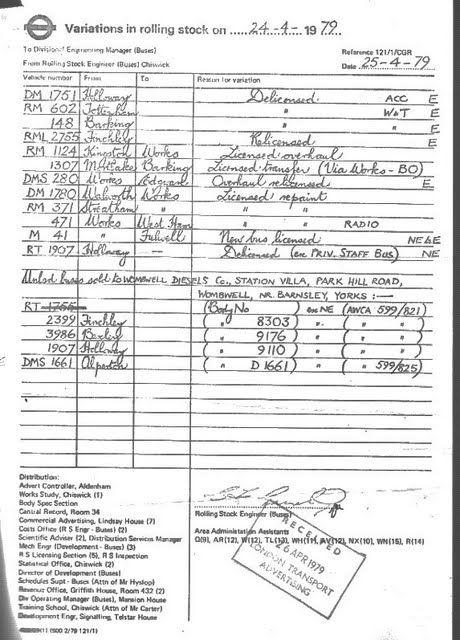 Variations in rolling stock on 24-4- 1979
To Divisional Engineering Manager (Buses)
Reference 121/1/CGR
From Rolling Stock Engineer (Buses) Chiswick
Date 25-4-79
Vehicle number From To Reason for variation
DM 1751 Holloway Delicensed. ACC E
RM 602 Tottenham " W&T E
148 Barking " " E
RML 2755 Finchley Relicensed E
RM 1124 Kingston Works Licensed overhaul
1307 Barking Licensed transfer (Via Works-BO)
DMS 280 Works Edgware Overhaul relicensed E
DM 1780 Walworth Works Licensed repaint
RM 371 Streatham " " "
471 Works West Ham " " RADIO
M 41 " Fulwell New bus licensed NE&E
RT 1907 Holloway — Delicensed (ex PRIV. STAFF BUS) NE
Unlsd buses sold to WOMBWELL DIESELS Co., STATION VILLA, PARK HILL ROAD,
WOMBWELL, NR. BARNSLEY, YORKS :—
RT 1755 (Body No ex NE (AWCA 599/821)
2399 Finchley ( " 8303) ". ( " " )
3986 Bexley ( " 9176) " ( " " )
1907 Holloway ( " 9110) " ( " " )
DMS 1661 Alperton ( " D 1661) ( " 599/825)
Distribution:
Advert Controller, Aldenham
Works Study, Chiswick (1)
Body Spec Section
Central Record, Room 34
Commercial Advertising, Lindsay House (7)
Costs Office (R S Engr - Buses) (2)
Scientific Adviser (2), Distribution Services Manager
Mech Engr (Development - Buses) (3)
R S Licensing Section (5), R S Inspection
Statistical Office, Chiswick (2)
Director of Development (Buses)
Schedules Supt - Buses (Attn of Mr Hyslop)
Revenue Office, Griffith House, Room 432 (2)
Div Operating Manager (Buses), Mansion House
Training School, Chiswick (Attn of Mr Carter)
Development Engr, Signalling, Telstar House
Rolling Stock Engineer (Buses)
Area Administration Assistants
Q(9), AR(12), W(12), TL(13), WH(11), AV(12), NX(10), WN(15), R(14)
RECEIVED
26 APR 1979
LONDON TRANSPORT
ADVERTISING
(500 2/79 121/1)